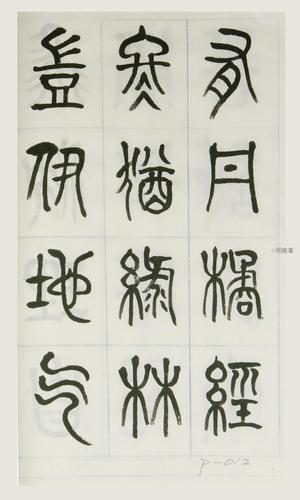 有丹橘經
冬猶綠林
豈伊地气
p-012